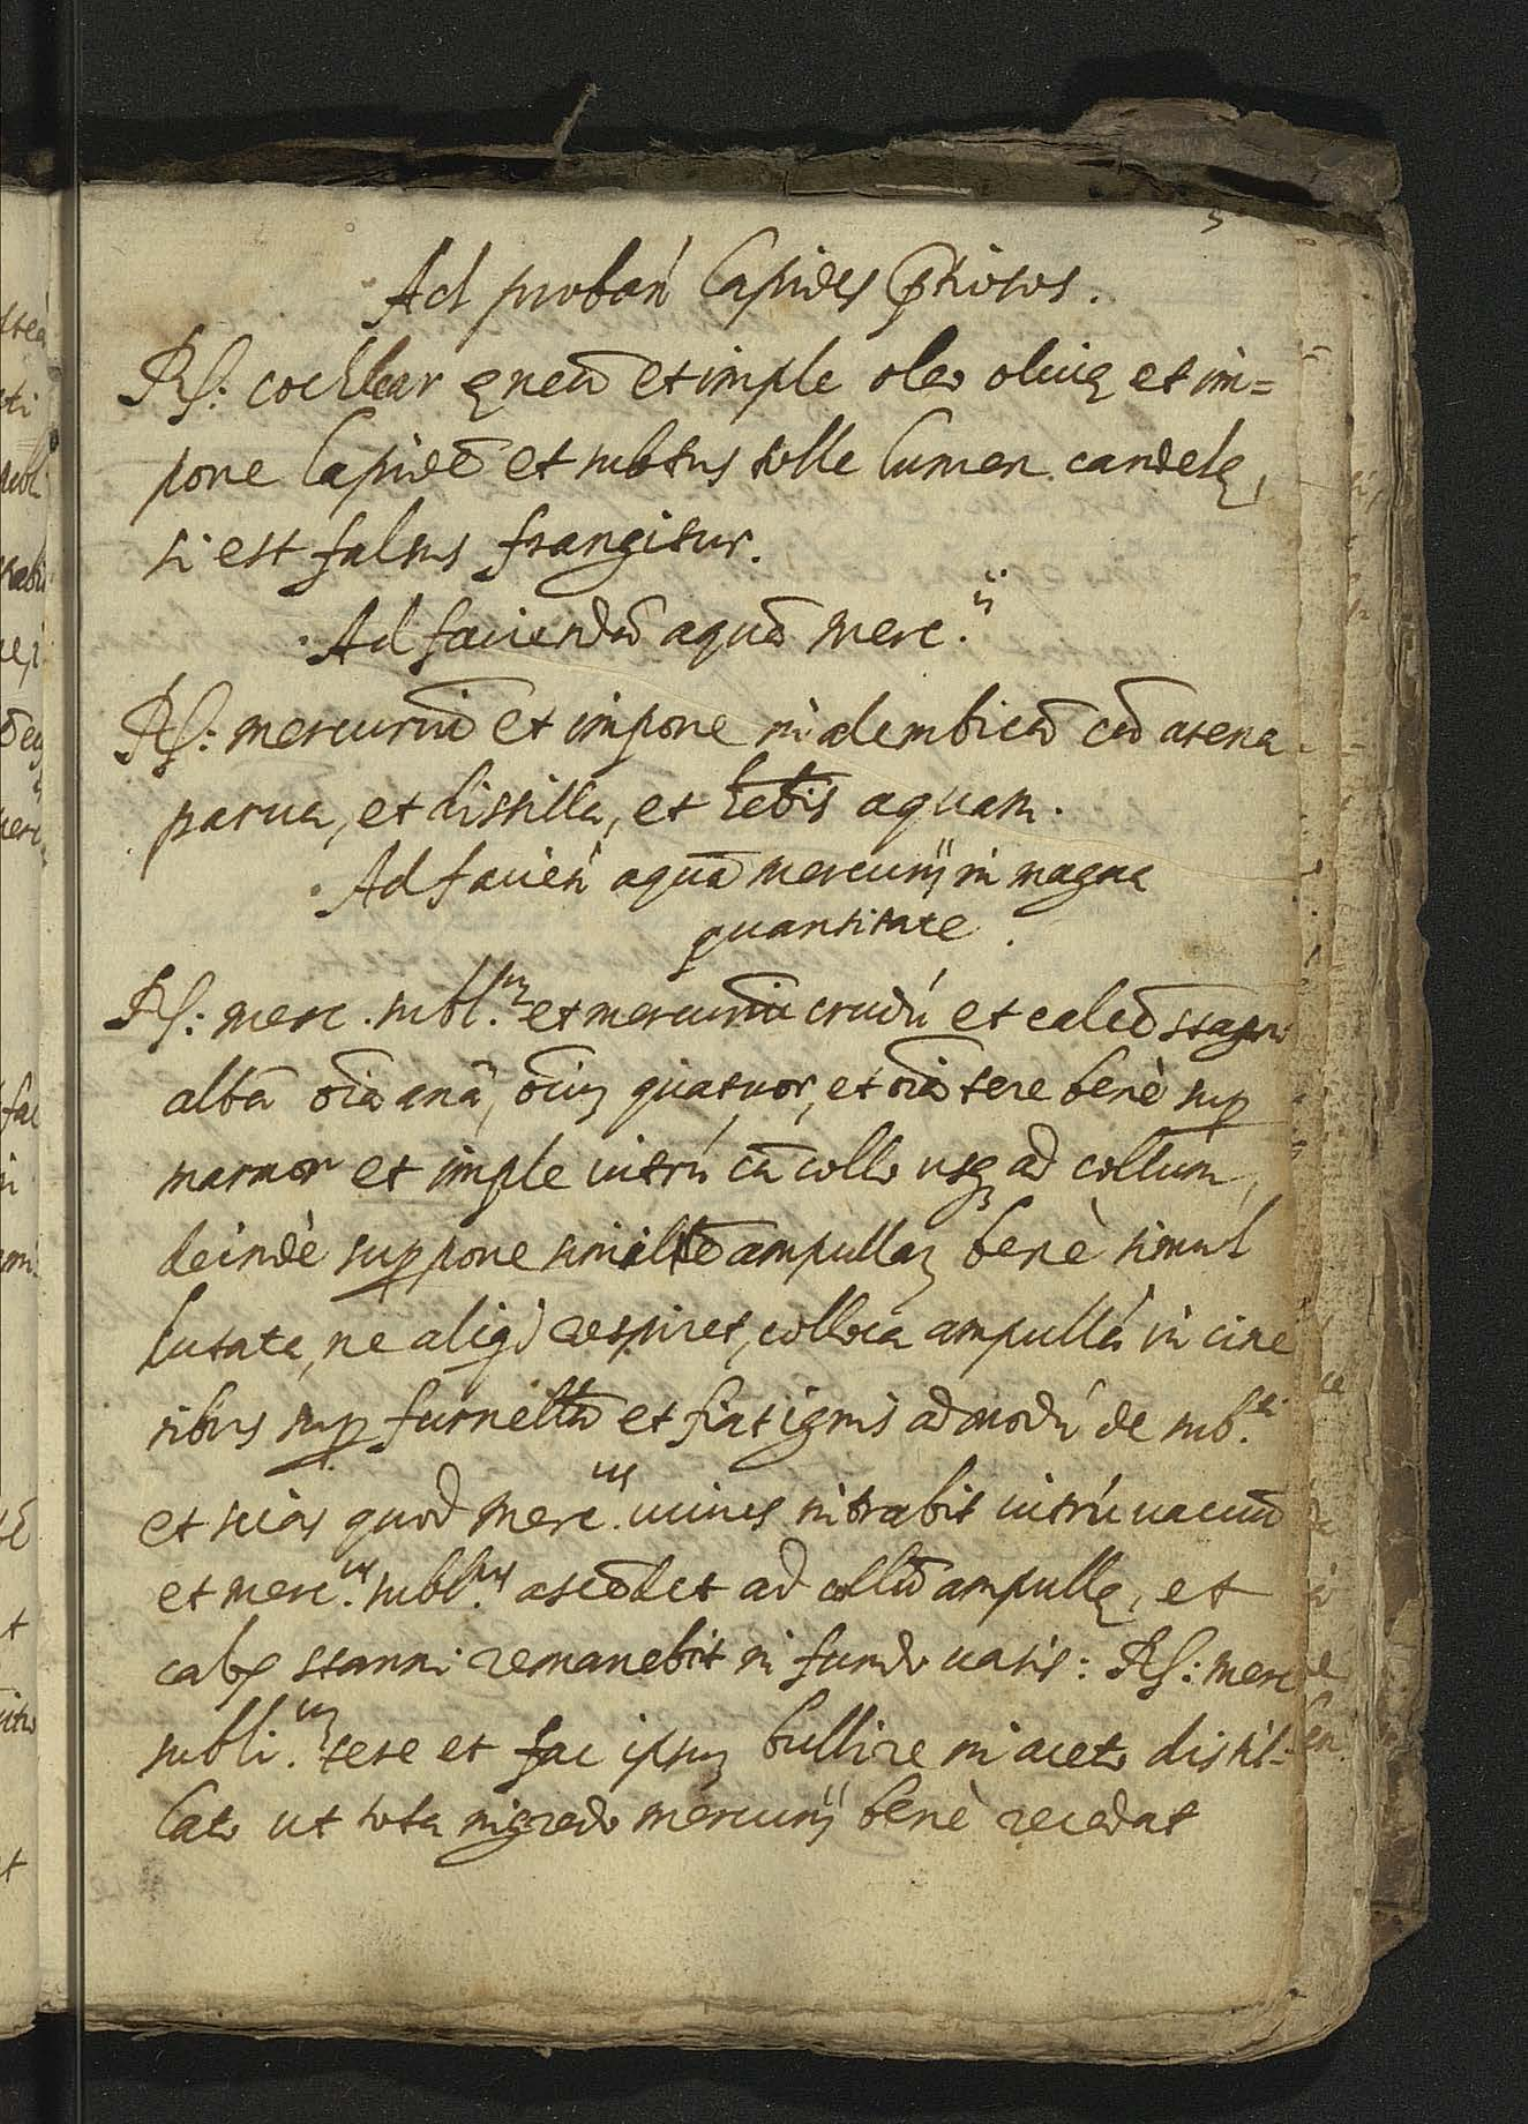 5
Ad proban̄ lapides p̄tiosos.
Rſ: cochlear ęneū et imple oleo oliuę et im=
pone lapidē et subtus tolle lumen candelę,
si est falsus frangitur.
Ad faciendā aquā merc.ii
Rſ: mercuriū et impone in alembicū cū arena
parua, et distilla, et hebis aquam.
Ad facien̄ aquā mercurij in magna
quantitate.
Rſ: merc. subl.m et mercuriū crudū et calcē stagni
albā oīa anā, ōium quatuor, et oīa tere benè sup
marmor et imple uitrū cū collo usq ad collum,
deindè suppone similē ampullam benè simul
lutata, ne aliqd respiret, colloca ampullā in cine
ribus sup furnellū et fiat ignis ad modū de sub.li
et scias quod merc.us uiuus intrabit uitrū uacuū
et merc.us subl.us ascēdet ad collū ampullę, et
calx stanni remanebit in fundo uasis: Rſ: merc
subli.um tere et fac ipsum bullire in aceto distil-
lato ut tota nigredo mercurij benè recedat